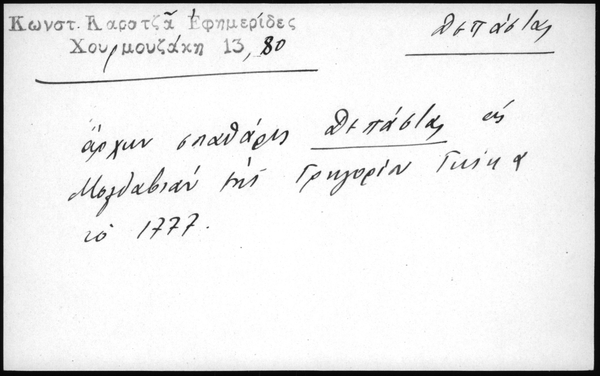 Κωνστ. Καρατζᾶ Ἐφημερίδες
Χουρμουζάκη 13, 80
Δεπάστας
ἄρχων σπαθάρης Δεπάστας εἰς
Μολδαβίαν ἐπὶ Γρηγορίου Γκίκα
τὸ 1777.